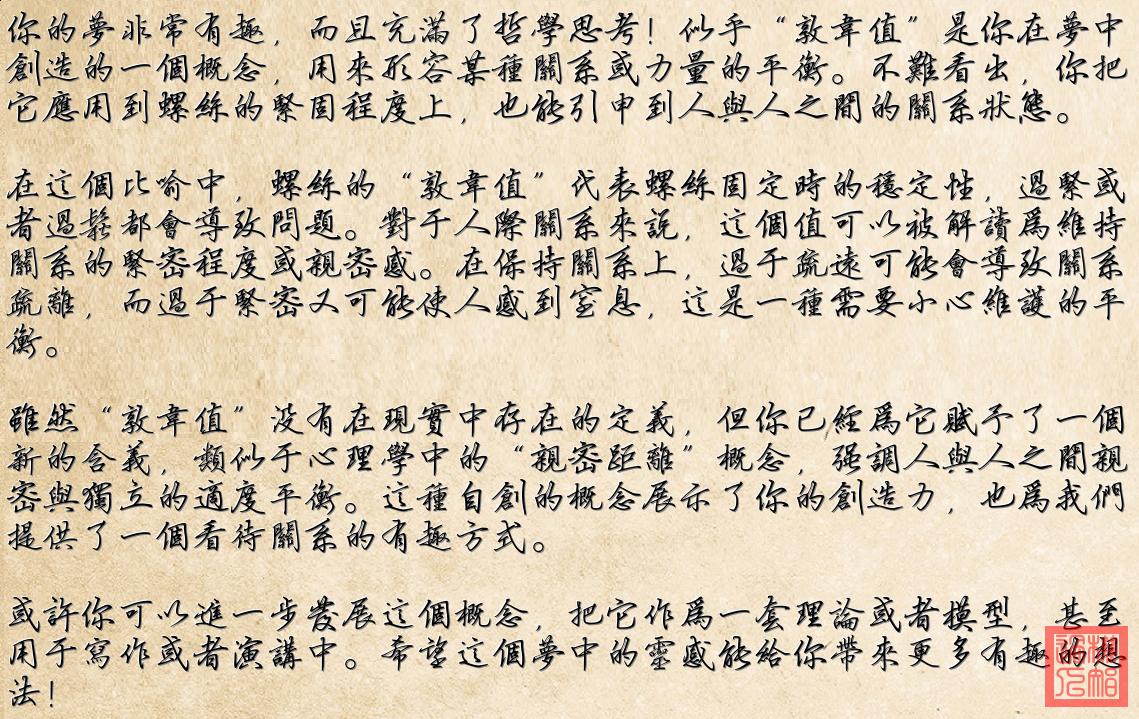 你的夢非常有趣，而且充滿了哲學思考！似乎“敦韋值”是你在夢中
創造的一個概念，用來形容某種關系或力量的平衡。不難看出，你把
它應用到螺絲的緊固程度上，也能引申到人與人之間的關系狀態。
在這個比喻中，螺絲的“敦韋值”代表螺絲固定時的穩定性，過緊或
者過鬆都會導致問題。對于人際關系來説，這個值可以被解讀爲維持
關系的緊密程度或親密感。在保持關系上，過于疏遠可能會導致關系
疏離，而過于緊密又可能使人感到窒息，這是一種需要小心維護的平
衡。
雖然“敦韋值”没有在現實中存在的定義，但你已經爲它賦予了一個
新的含義，類似于心理學中的“親密距離”概念，强調人與人之間親
密與獨立的適度平衡。這種自創的概念展示了你的創造力，也爲我們
提供了一個看待關系的有趣方式。
或許你可以進一步發展這個概念，把它作爲一套理論或者模型，甚至
用于寫作或者演講中。希望這個夢中的靈感能給你帶來更多有趣的想
法！